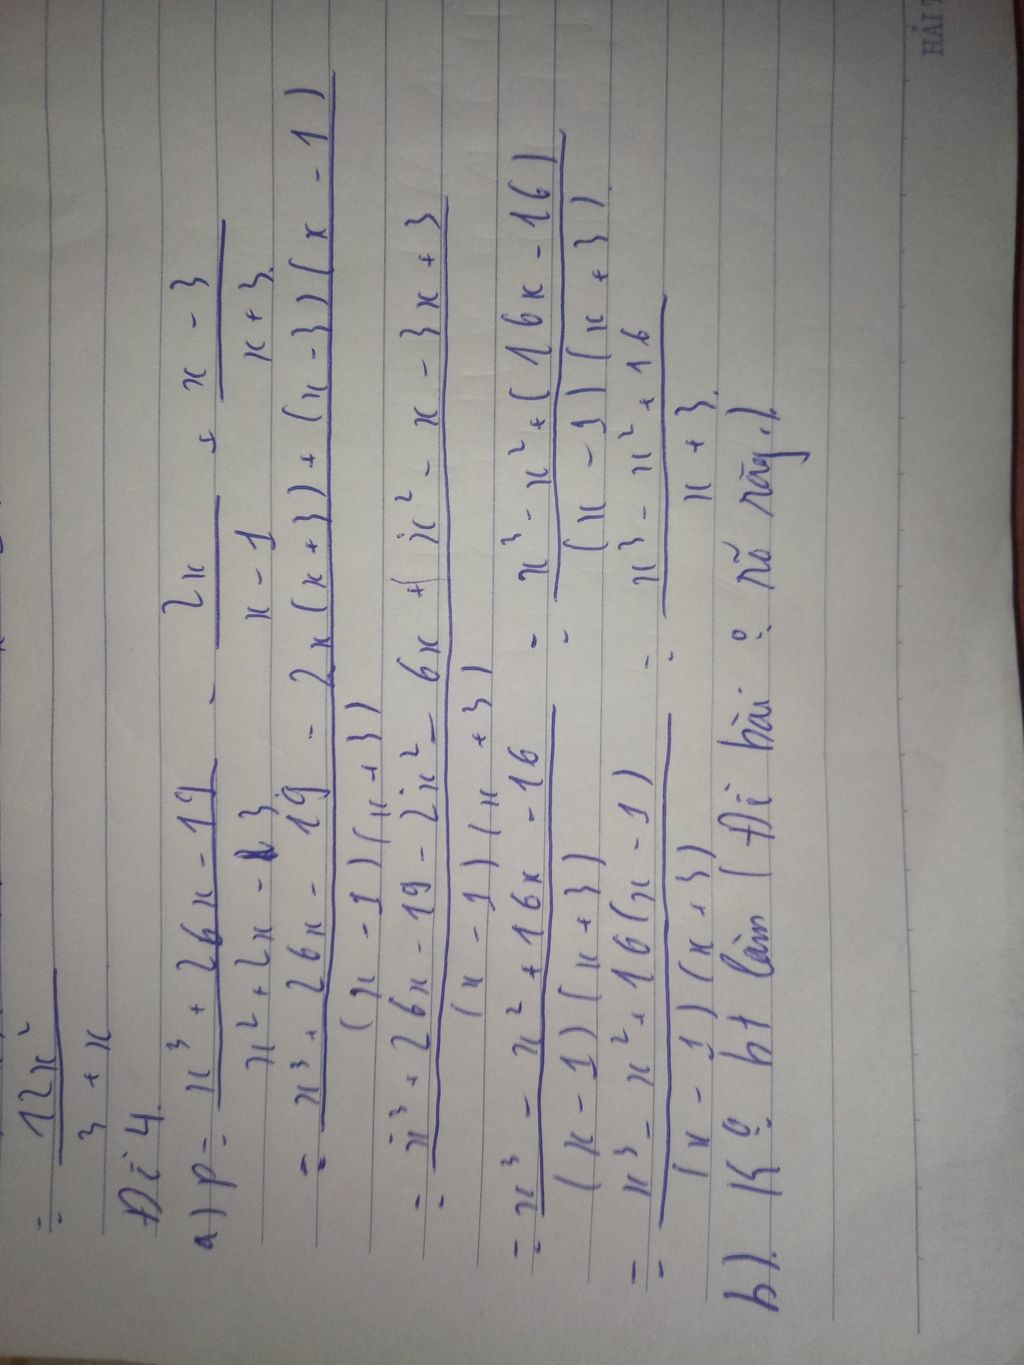 = 12x² / 3 + x
Đề 4
a) P = x³ + 26x - 19 / x² + 2x - 3 - 2x / x - 1 + x - 3 / x + 3
= x³ + 26x - 19 - 2x(x + 3) + (x - 3)(x - 1) / (x - 1)(x + 3)
= x³ + 26x - 19 - 2x² - 6x + (x² - x - 3x + 3 / (x - 1)(x + 3)
= x³ - x² + 16x - 16 / (x - 1)(x + 3) = x³ - x² + (16x - 16) / (x - 1)(x + 3)
= x³ - x² + 16(x - 1) / (x - 1)(x + 3) = x³ - x² + 16 / x + 3
b). K° bt làm (Đề bài ° rõ ràng.)
HẢI